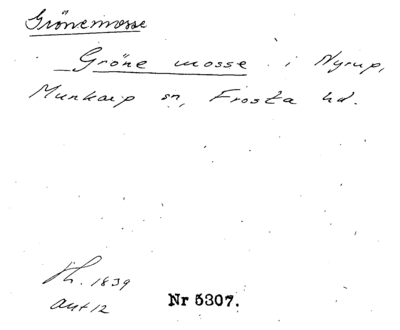 Grönemosse
Gröne mosse i Nyrup,
Munkarp sn, Frosta hd.
1839
ant 12
Nr 5307.